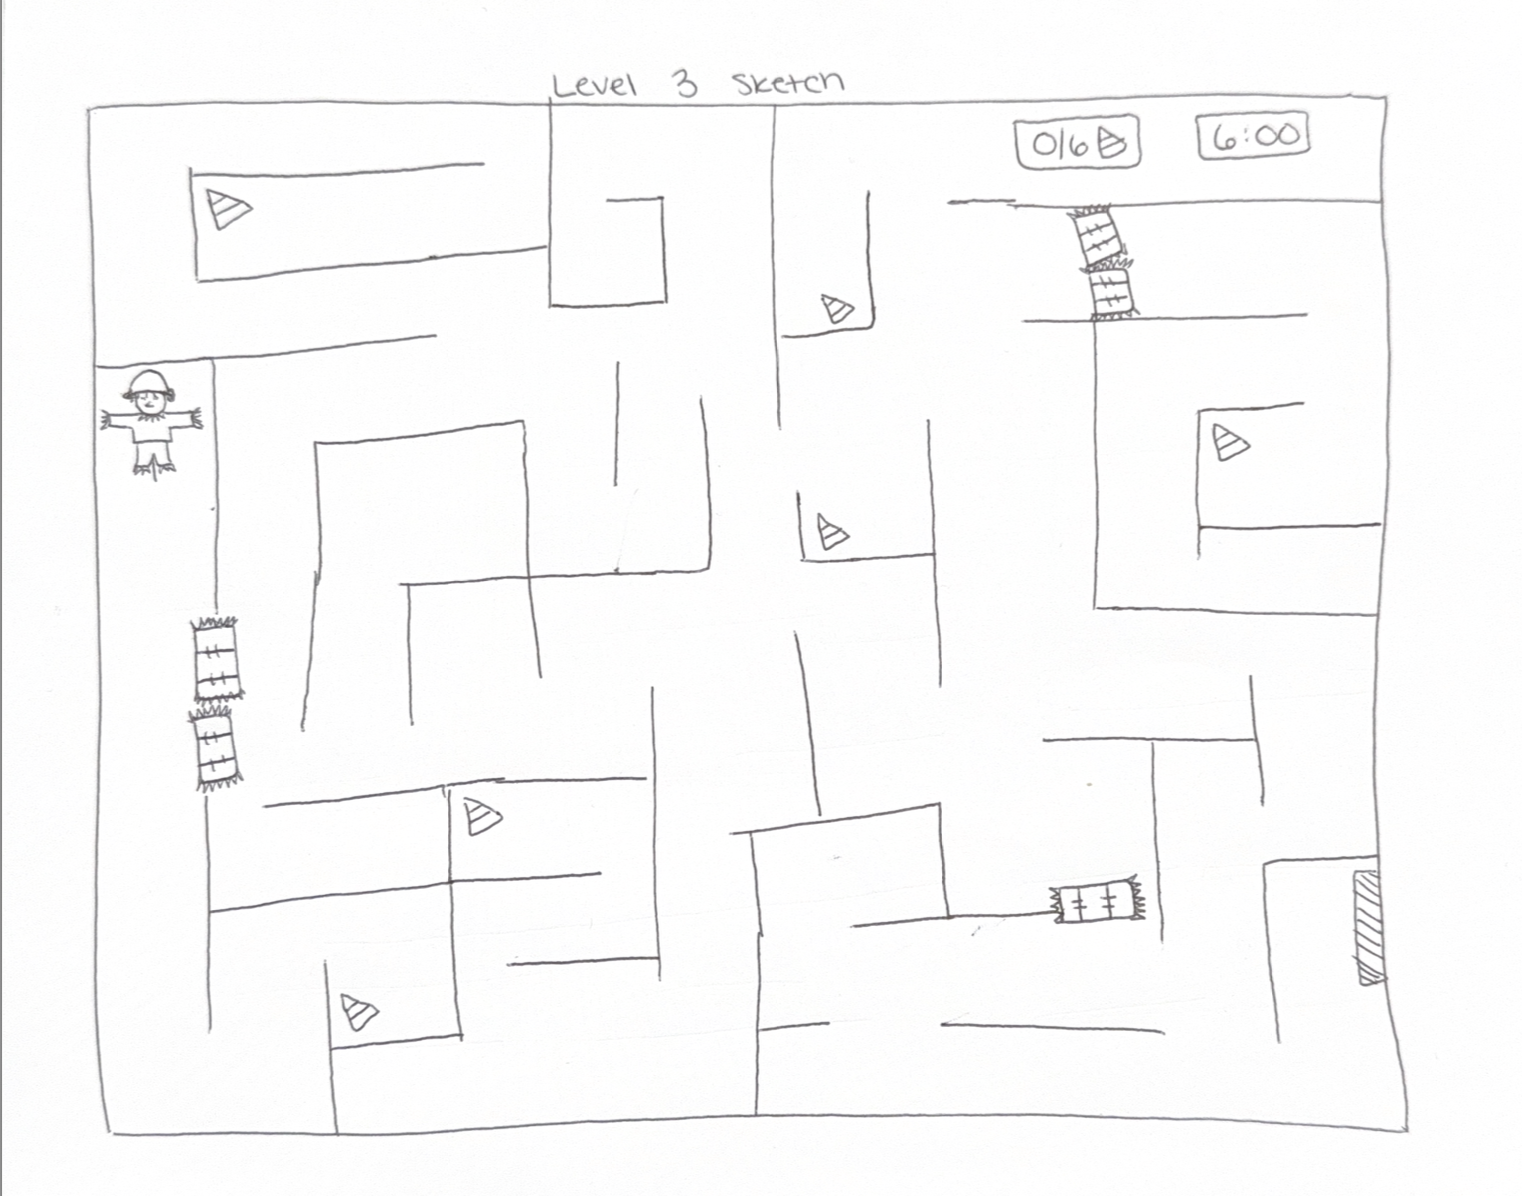 Level 3 Sketch
0/6
6:00